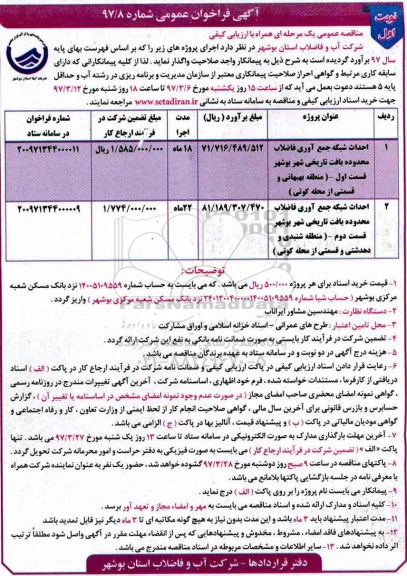 آگهی فراخوان عمومی شماره ۹۷/۸
نوبت اول
مناقصه عمومی یک مرحله ای همراه با ارزیابی کیفی
شرکت آب و فاضلاب استان بوشهر در نظر دارد اجرای پروژه های زیر را که بر اساس فهرست بهای پایه
سال ۹۷ برآورد گردیده است به شرح ذیل به پیمانکار واجد صلاحیت واگذار نماید. لذا از کلیه پیمانکارانی که دارای
سابقه کاری مرتبط و گواهی احراز صلاحیت پیمانکاری معتبر از سازمان مدیریت و برنامه ریزی در رشته آب و حداقل
پایه ۵ هستند دعوت بعمل می آید که از ساعت ۱۵ روز یکشنبه مورخ ۹۷/۳/۶ تا ساعت ۱۸ روز شنبه مورخ ۹۷/۳/۱۲
جهت خرید اسناد ارزیابی کیفی و مناقصه به سامانه ستاد به نشانی www.setadiran.ir مراجعه نمایند.
ردیف عنوان پروژه مبلغ برآورد (ریال) مدت اجرا مبلغ تضمین شرکت در فرآیند ارجاع کار شماره فراخوان در سامانه ستاد
۱ احداث شبکه جمع آوری فاضلاب محدوده بافت تاریخی شهر بوشهر قسمت اول - (منطقه بهبهانی و قسمتی از محله کوتی) ۷۱/۷۱۶/۴۸۹/۵۱۲ ۱۸ ماه ۱/۵۸۵/۰۰۰/۰۰۰ ریال ۲۰۰۹۷۱۳۴۴۰۰۰۰۱۱
۲ احداث شبکه جمع آوری فاضلاب محدوده بافت تاریخی شهر بوشهر قسمت دوم - (منطقه شنبدی و دهدشتی و قسمتی از محله کوتی) ۸۱/۱۸۹/۳۰۷/۴۷۰ ۲۲ ماه ۱/۷۷۴/۰۰۰/۰۰۰ ۲۰۰۹۷۱۳۴۴۰۰۰۰۰۹
توضیحات:
۱- قیمت خرید اسناد برای هر پروژه ۵۰۰/۰۰۰ ریال می باشد. که می بایست به حساب شماره ۱۴۰۰۵۱۰۹۵۵۹ نزد بانک مسکن شعبه
مرکزی بوشهر واریز گردد.
۲- دستگاه نظارت: مهندسین مشاور ایراناب
۳- محل تامین اعتبار: طرح های عمرانی - اسناد خزانه اسلامی و اوراق مشارکت
۴- تضمین شرکت در فرآیند کار بایستی به صورت ضمانت نامه بانکی به نفع این شرکت ارائه گردد.
۵- هزینه درج آگهی در دو نوبت و در سامانه ستاد به عهده برندگان مناقصه می باشد.
۶- رعایت قرار دادن اسناد ارزیابی کیفی در پاکت ارزیابی کیفی و ضمانت نامه شرکت در فرآیند ارجاع کار در پاکت (الف) اسناد
دریافتی از کارفرما، مستندات خواسته شده، فرم خود اظهاری، اساسنامه شرکت، آخرین آگهی تغییرات مندرج در روزنامه رسمی
، گواهی نمونه امضای محضری صاحب امضای مجاز (در صورت عدم وجود نمونه امضای مشخص در اساسنامه یا تغییر آن)، گزارش
حسابرس و بازرس قانونی برای آخرین سال مالی، گواهی صلاحیت انجام کار از لحظ ایمنی از وزارت تعاون، کار و رفاه اجتماعی و
گواهی مودیان مالیاتی در پاکت (ب) و پیشنهاد قیمت، آنالیز بها در پاکت (ج) الزامی می باشد.
۷- آخرین مهلت بارگذاری مدارک به صورت الکترونیکی در سامانه ستاد تا ساعت ۱۳ روز یک شنبه مورخ ۹۷/۳/۲۷ می باشد. تنها
پاکت «الف» (تضمین شرکت در فرآیند ارجاع کار) می بایست به صورت فیزیکی به دفتر حراست و امور محرمانه شرکت تحویل گردد.
۸- پاکتهای مناقصه در ساعت ۹ صبح روز دوشنبه مورخ ۹۷/۳/۲۸ گشوده خواهد شد، حضور یک نفر به عنوان نماینده شرکت همراه
با معرفی نامه در جلسه بازگشایی پاکتها بلامانع می باشد.
۹- پیمانکار می بایست نام پروژه را بر روی پاکت (الف) درج نماید.
۱۰- کلیه اسناد و مدارک ارائه شده و اسناد مناقصه می بایست به مهر و امضاء مجاز و تعهد آور برسد.
۱۱- مدت اعتبار پیشنهاد باید ۳ ماه باشد و این مدت بدون نیاز به هیچ گونه مکاتبه ای تا ۳ ماه دیگر نیز قابل تمدید باشد
۱۲- به پیشنهادهای فاقد امضاء، مشروط، مخدوش و پیشنهادهایی که پس از انقضاء مهلت مقرر در آگهی واصل شود مطلقاً ترتیب
اثر داده نخواهد شد. ۱۳- سایر اطلاعات و مشخصات مربوطه در اسناد مناقصه مندرج می باشد.
دفتر قراردادها - شرکت آب و فاضلاب استان بوشهر